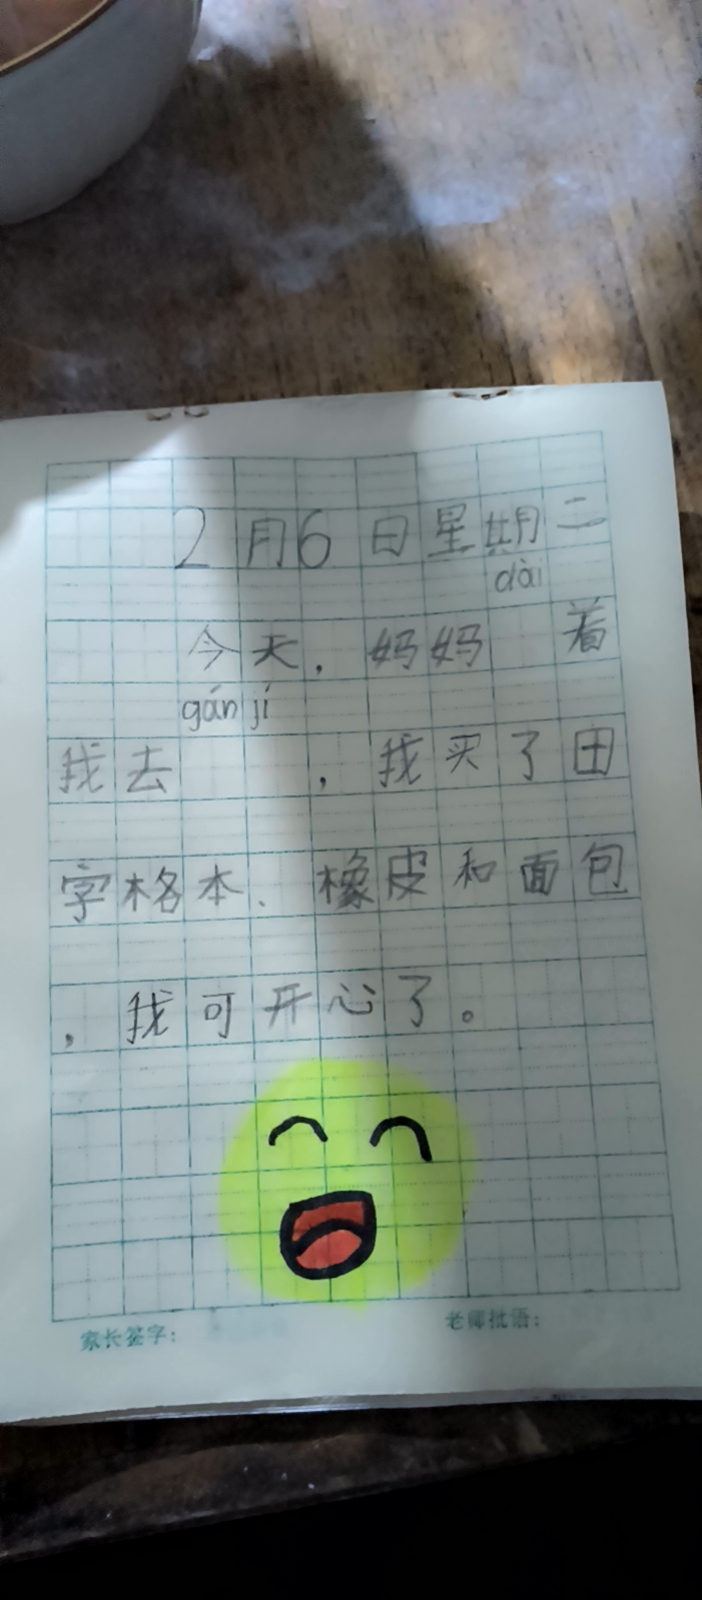 2月6日星期二
dài
今天，妈妈 着
gán jí
我去 ，我买了田
字格本、橡皮和面包
，我可开心了。
家长签字： 老师批语：